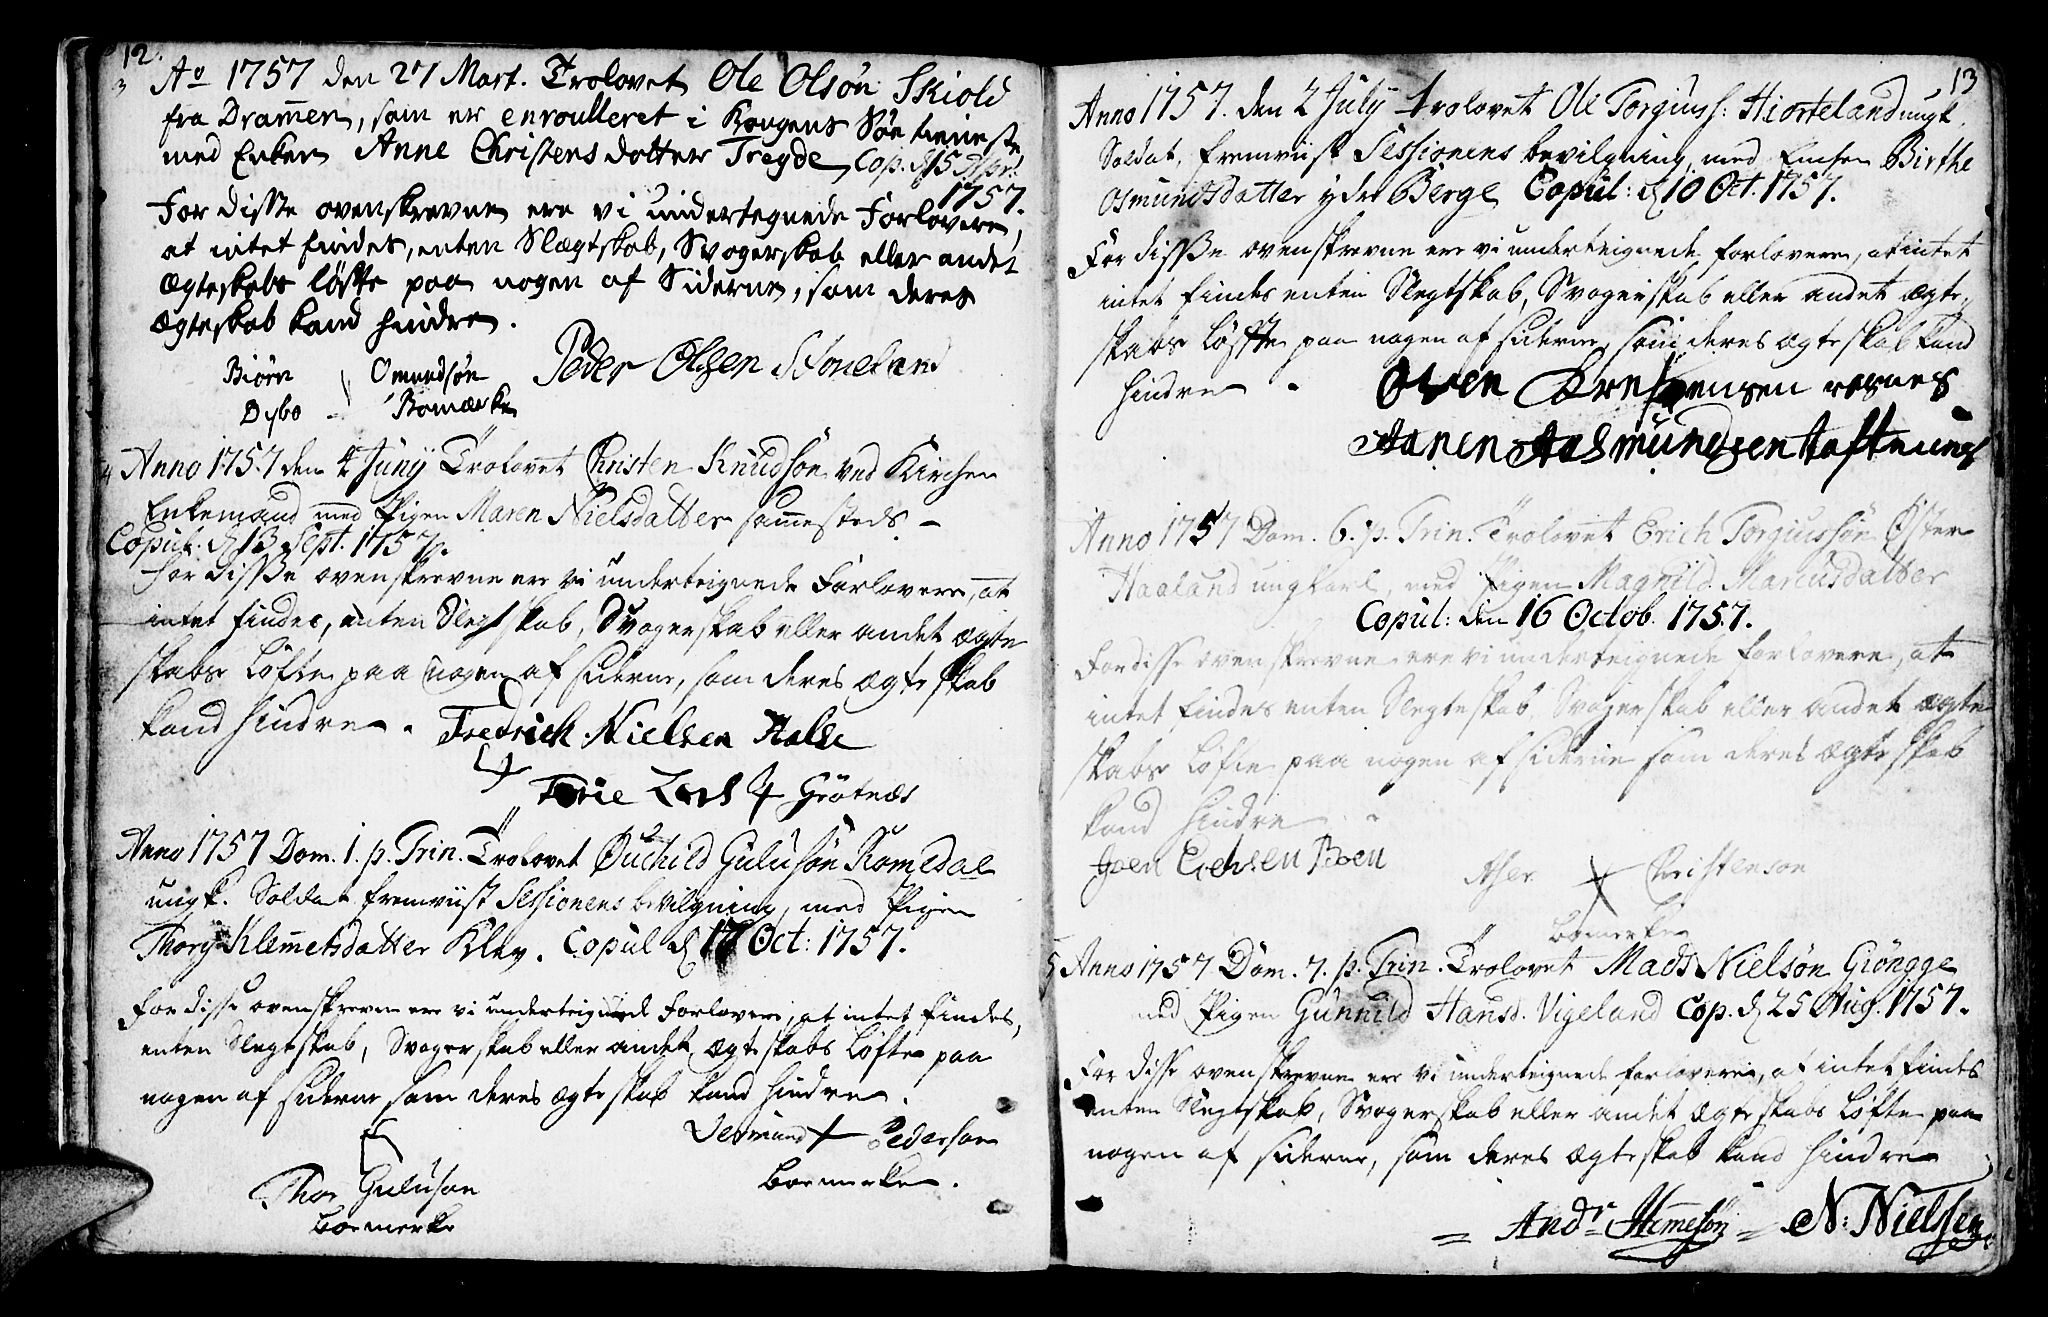 12.
3 Ao 1757 den 27 Mart. Trolovet Ole Olsøn Skiold
fra Dramen, som er enroulleret i Kongens Söe tieneste
med Enken Anne Christensdotter Tregde, Cop. d 15 Apr:
1757.
For disse ovenskrevne ere vi undertegnede Forlovere,
at intet findes, enten Slægtskab, Svogerskab eller andet
Ægteskabs løfte paa nogen af Siderne, som deres
Ægteskab kand hindre.
Biørn Omundsøn Peder Olsen
Dybo Bomærke
4 Anno 1757 den 4 Junij Trolovet Christen Knudsøn ved Kirchen
Enkemand med Pigen Maren Nielsdatter sammesteds –
Copul: d 13 Sept. 1757.
For disse ovenskrevne ere vi underteignede Forlovere, at
intet findes, enten Slegtskab, Svogerskab eller andet ægte
skabs Løfte paa nogen af siderne, som deres ægteskab
kand hindre. Fredrich Nielsen Halse
Torie Grötnæs
Anno 1757 Dom. 1. p. Trin. Trolovet Gulusön Romedal
ungk. Soldat fremviist Sessionens bevilgning, med Pigen
Thory Klemetsdatter Klev. Copul d 17 Oct: 1757.
For disse ovenskrevne ere vi underteignede Forlovere, at intet findes,
enten Slegtskab, Svogerskab eller andet Ægteskabs Løfte paa
nogen af siderne som deres ægteskab kand hindre.
Pedersøn
Thor Gulusøn boemerke.
boemerke
13
Anno 1757. den 2 July trolovet Ole Torgiuss: Hiorteland ungk.
Soldat, fremviist Sessionens bevilgning, med Enchen Birthe
Osmundsdatter ydre Berge Copul: d 10 Oct. 1757.
For disse ovenskrevne ere vi underteignede forlovere, at intet
intet findes enten Slegtskab, Svogerskab eller andet ægte
skabs Løfte paa nogen af siderne, som deres ægteskab kand
hindre.
Aanen Aasmundsen
Anno 1757 Dom. 6. p. Trin. Trolovet Erich Torgiussøn Øster
Haaland ungkarl, med Pigen Magnild Marcusdatter
Copul: den 16 Octob. 1757.
For disse ovenskrevne ere vi underteignede Forlovere, at
intet findes enten Slegteskab, Svogerskab eller andet ægte
skabs Løfte paa nogen af siderne som deres ægteskab
kand hindre.
Aser Christensøn
boemerke
5 Anno 1757 Dom. 7. p. Trin. Trolovet Mads Nielsøn Giöngge
med Pigen Gunnild Hansd. Vigeland Cop. d 25 Aug. 1757.
For disse ovenskrevne ere vi underteignede forlovere, at intet findes
enten Slegtskab, Svogerskab eller andet ægteskabs Løfte paa
nogen af siderne, som deres ægteskab kand hindre
= Andr = N: Nielsen